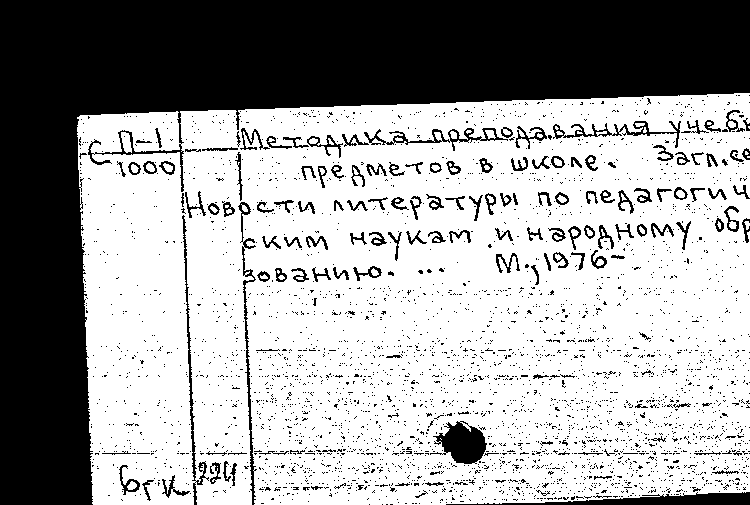 С П-1 Методика преподавания учебн
1000 предметов в школе. Загл.се
Новости литературы по педагогич
ским наукам и народному обр
зованию. ... М.,1976-
бгк 224